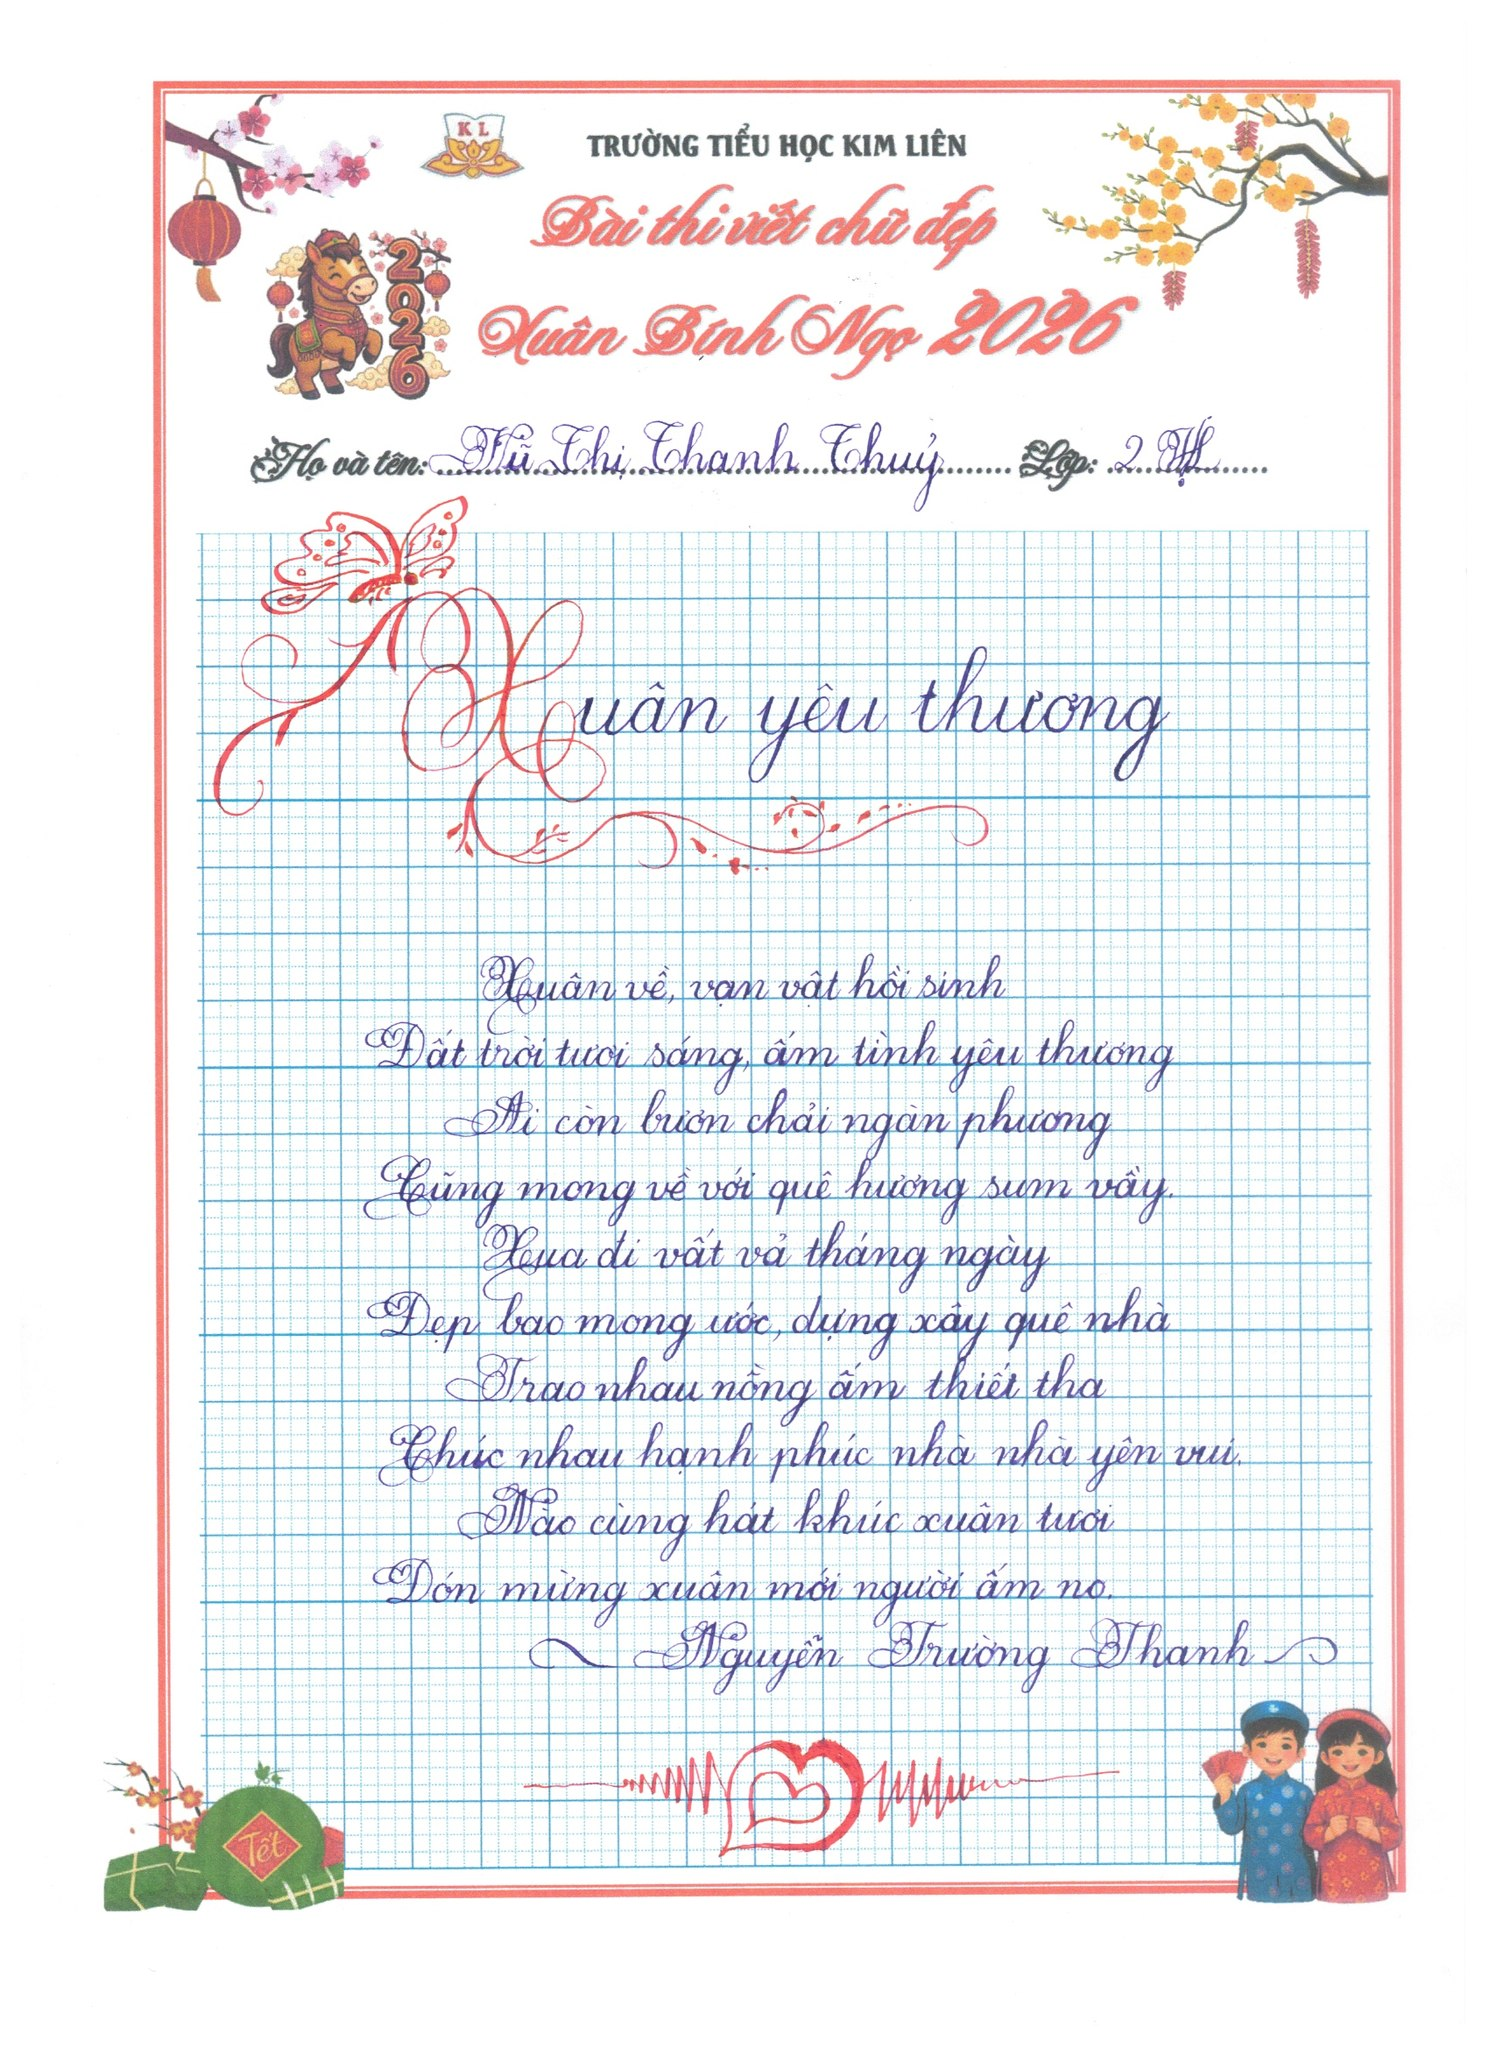 K L
TRƯỜNG TIỂU HỌC KIM LIÊN
Bài thi viết chữ đẹp
2026
Xuân Bính Ngọ 2026
Họ và tên: Vũ Thị Thanh Thuỷ Lớp: 2
Xuân yêu thương
Xuân về, vạn vật hồi sinh
Đất trời tươi sáng, ấm tình yêu thương
Ai còn bươn chải ngàn phương
Cũng mong về với quê hương sum vầy.
Xua đi vất vả tháng ngày
Đẹp bao mong ước, dựng xây quê nhà
Trao nhau nồng ấm thiết tha
Chúc nhau hạnh phúc nhà nhà yên vui.
Nào cùng hát khúc xuân tươi
Đón mừng xuân mới người ấm no.
Nguyễn Trường Thanh
Tết